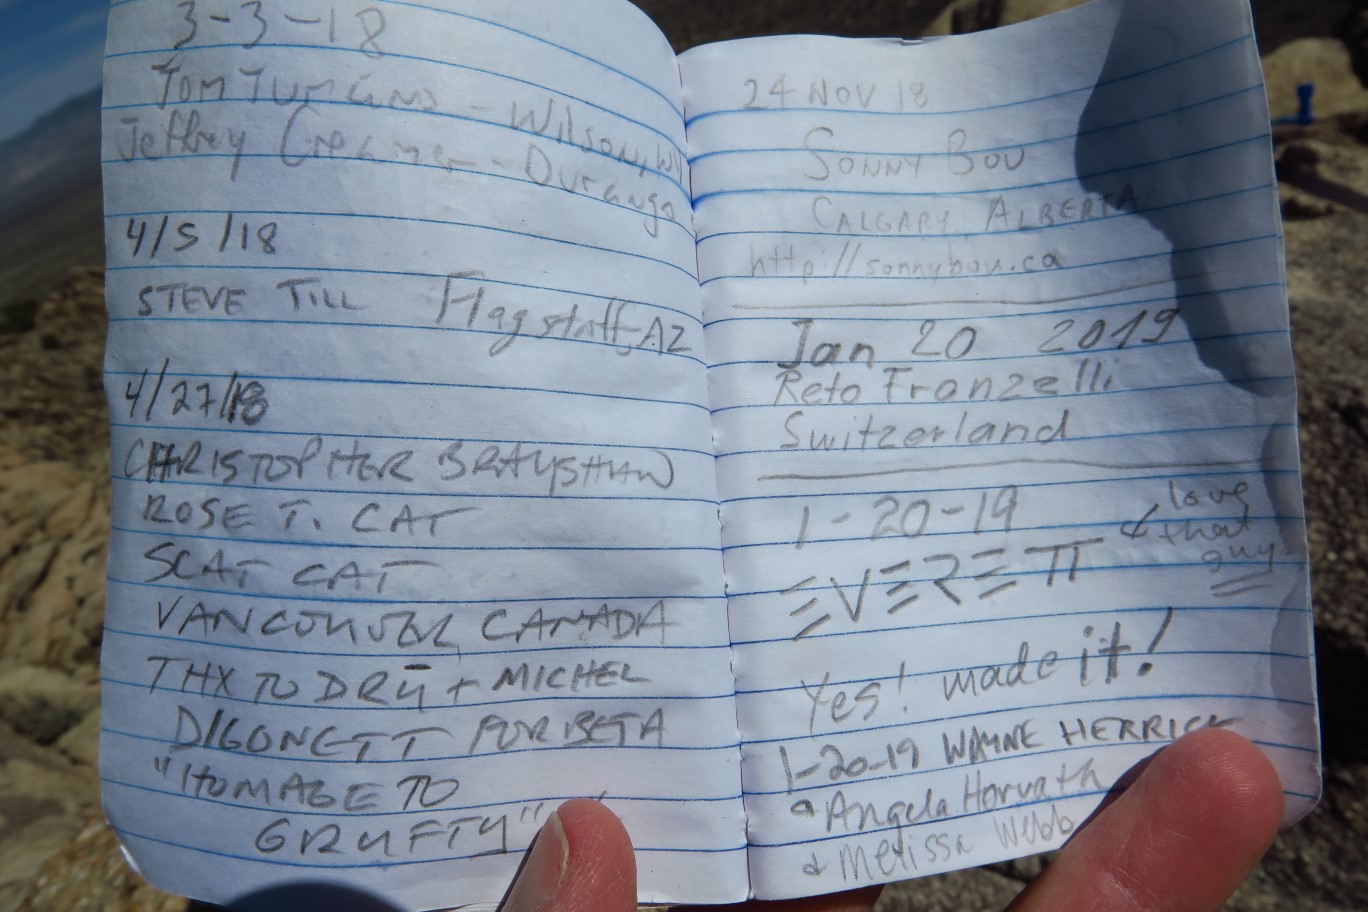 3-3-18
Tom Turiano - Wilson, WY
Jeffrey Creamer - Durango
4/5/18
STEVE TILL Flagstaff, AZ
4/27/18
CHRISTOPHER BRAYSHAW
ROSE T. CAT
SCAT CAT
VANCOUVER, CANADA
THX TO DRū + MICHEL
DIGONETT FOR BETA
"HOMAGE TO
GRUFTY"
24 NOV 18
SONNY BOU
CALGARY, ALBERTA
http://sonnybou.ca
Jan 20 2019
Reto Franzelli
Switzerland
1-20-19
EVERETT
love
that
guy
Yes! made it!
1-20-19 WAYNE HERRICK
Angela Horvath
+ Melissa Webb